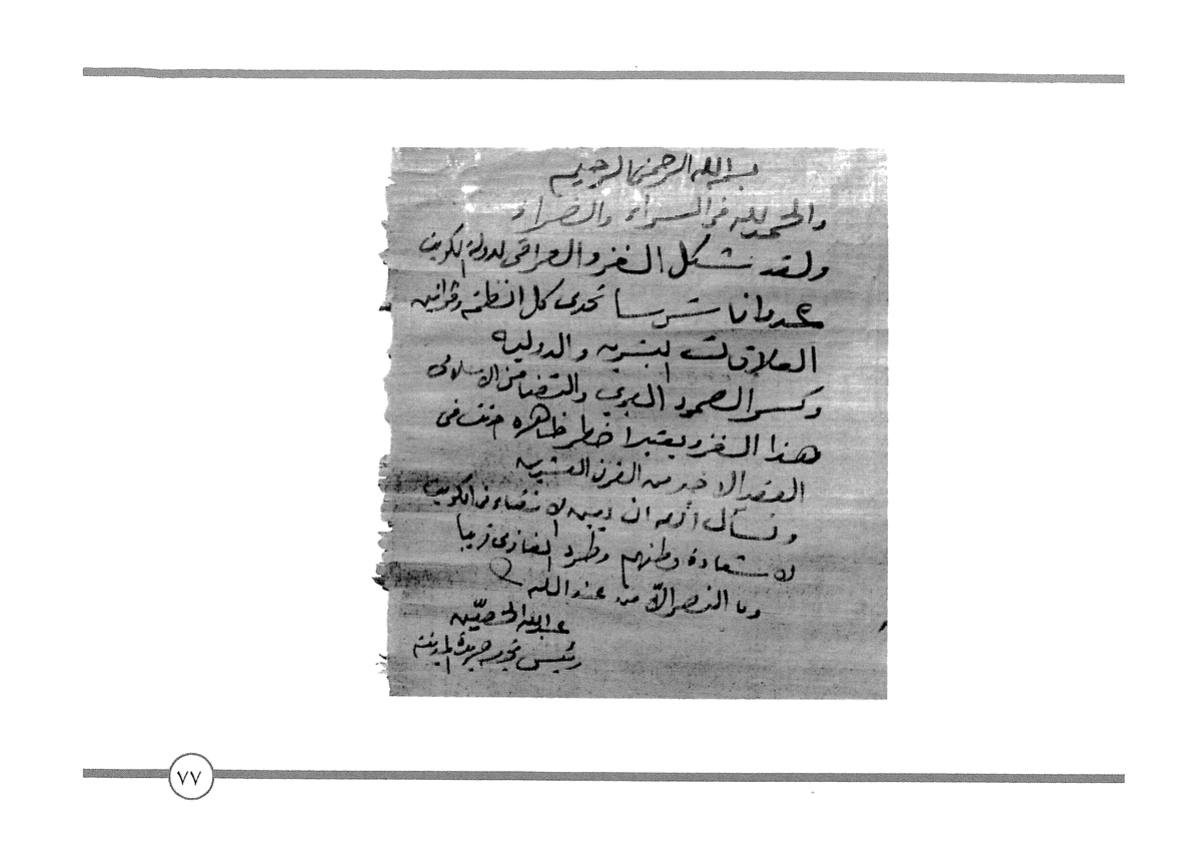 بسم الله الرحمن الرحيم
والحمد لله في السراء والضراء
ولقد شكل الغزو العراقي لدولة الكويت
عدوانا شرسا تحدى كل انظمة وقوانين
العلاقات البشرية والدولية
وكسر الصمود العربي والتضامن الاسلامي
هذا الغزو يعتبر اخطر ظاهره حدثت في
العقد الاخير من القرن العشرين
ونسأل الله ان يعين الاشقاء في الكويت
لاستعادة وطنهم وطرد الغازي قريبا
وما النصر الاّ من عند الله
عبدالله الحصيّن
رئيس تحرير جريدة المدينة
٧٧